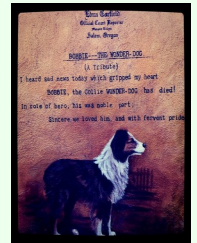 Edna Garfield
Official Court Reporter
Salem, Oregon
BOBBIE---THE WONDER-DOG
(A Tribute)
I heard sad news today which gripped my heart
BOBBIE, the Collie WONDER-DOG has died!
In role of hero, his was noble part,
Sincere we loved him, and with fervent pride